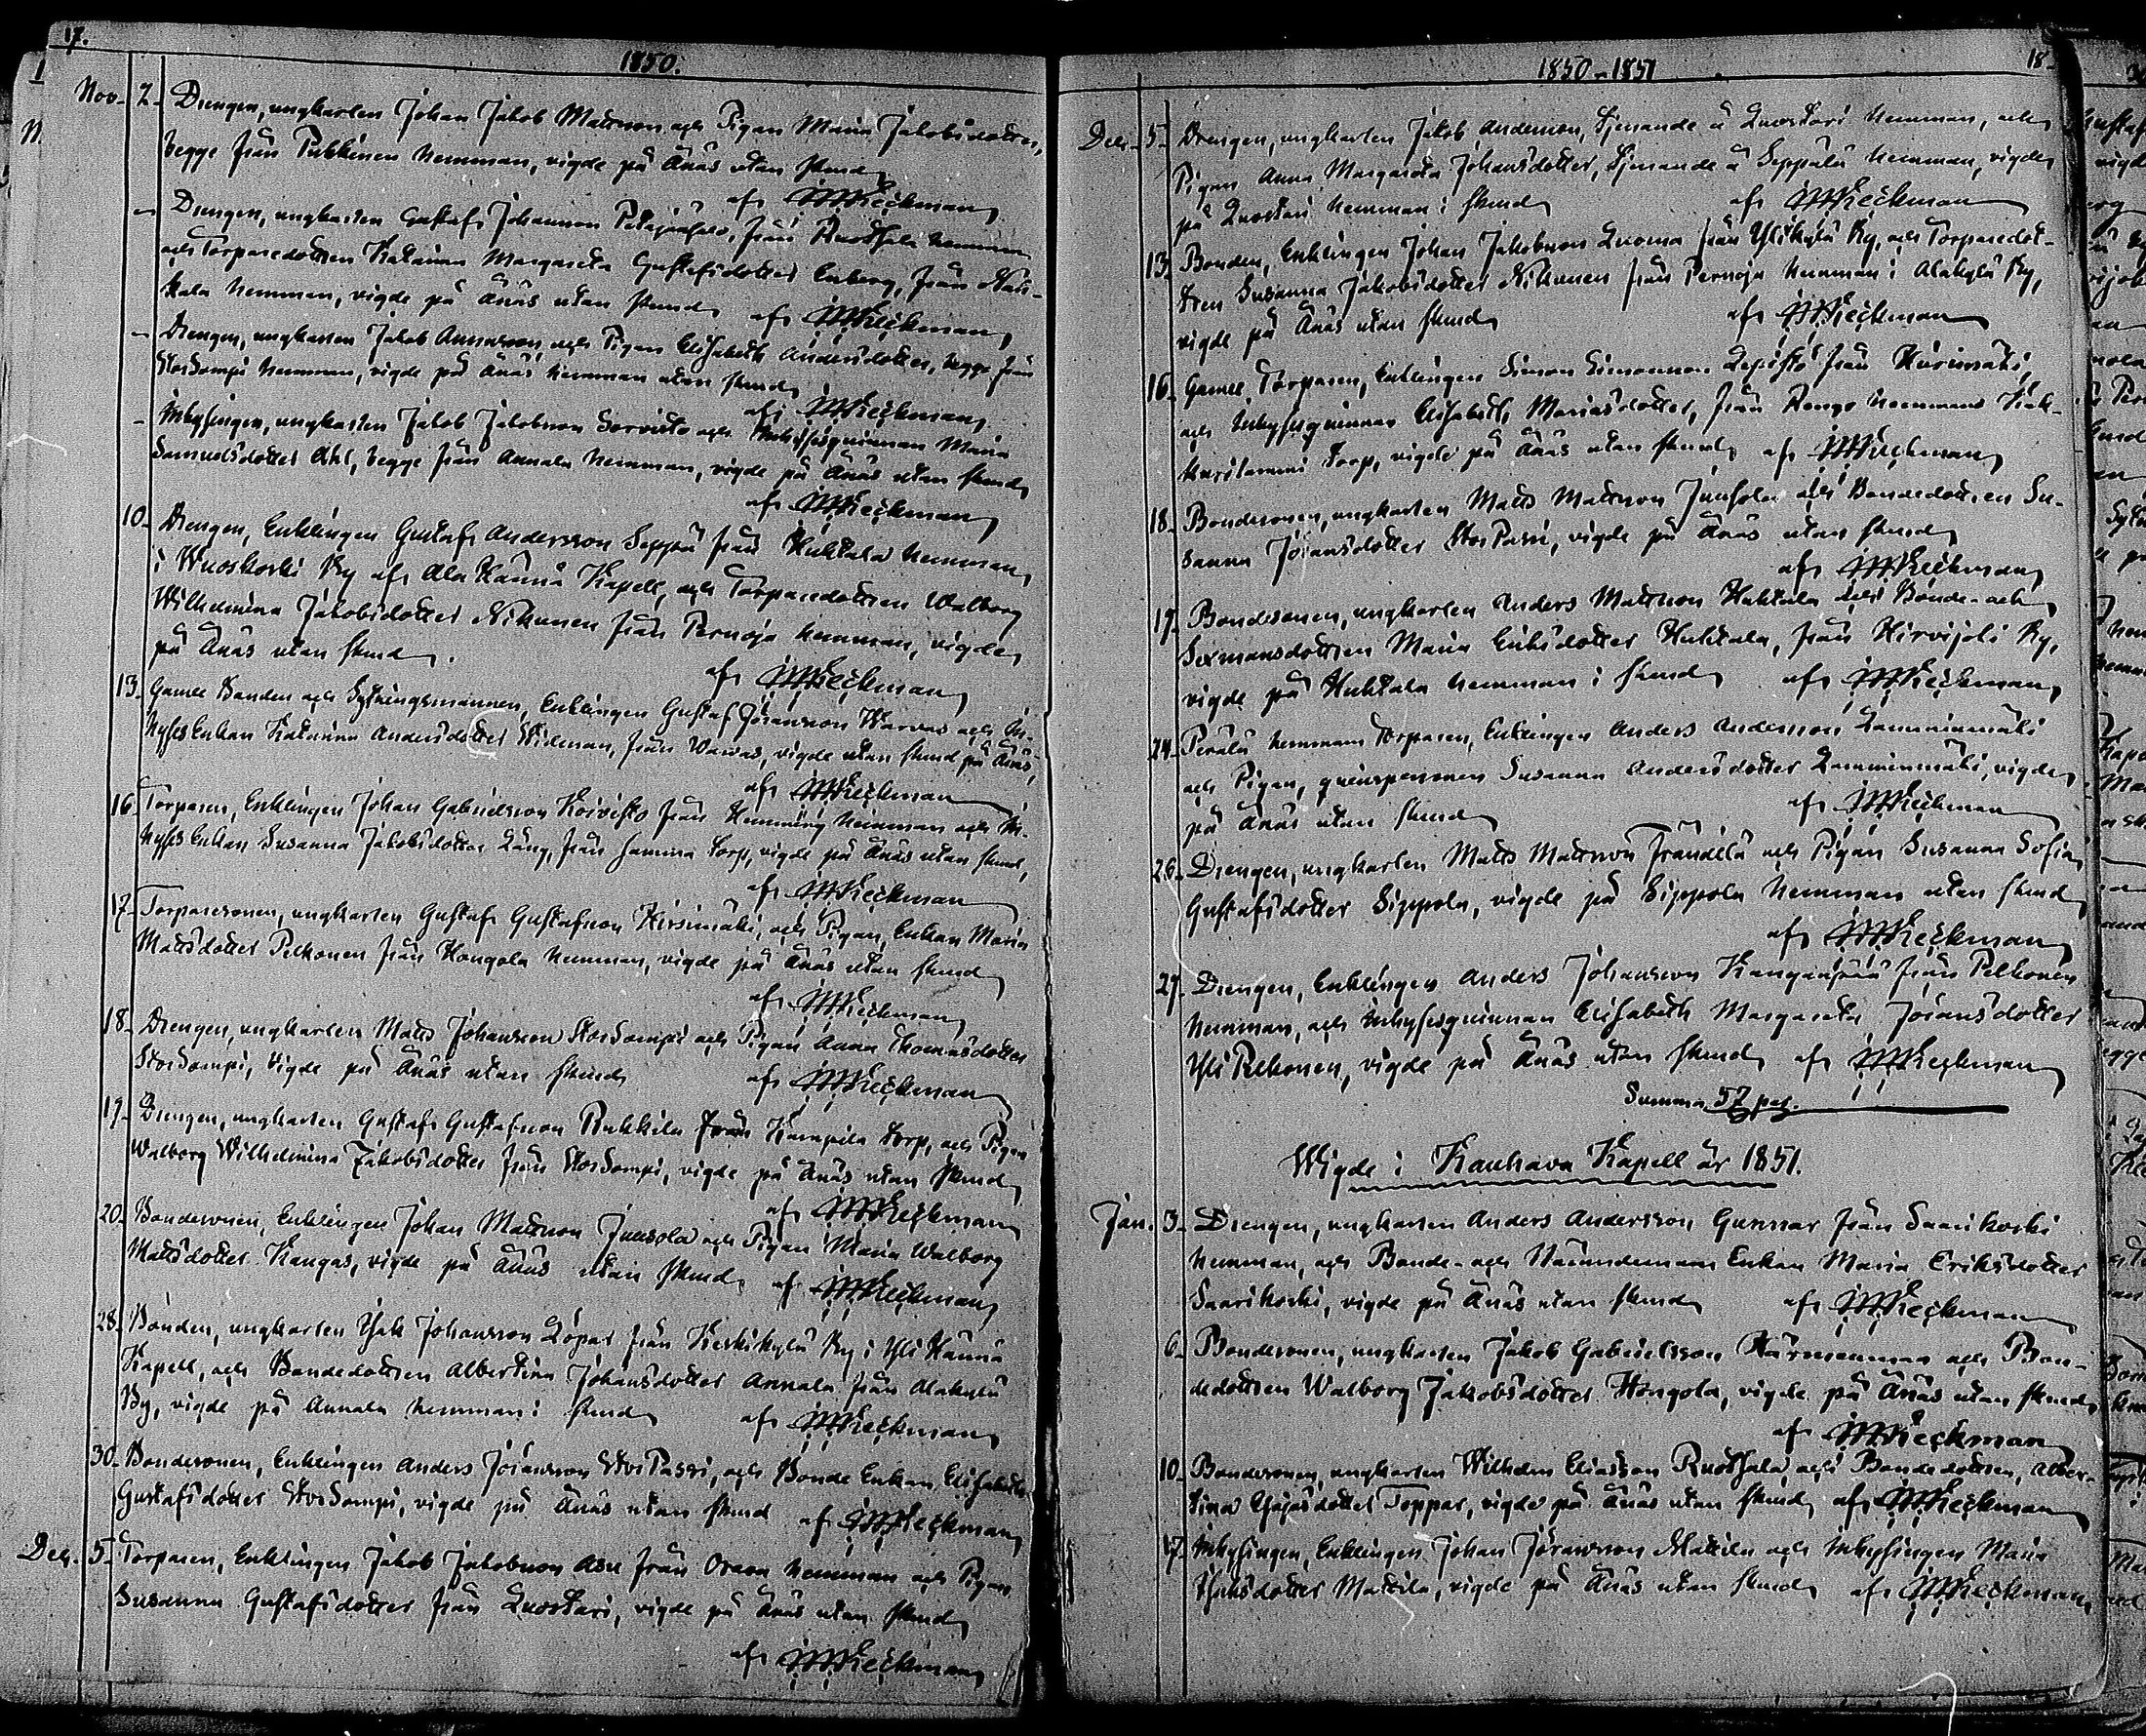 17.
1850.
Nov. 2. Drengen, ungkarlen Johan Jakob Mattsson och Pigan Maria Jakobsdotter,
begge från Pukkinen hemman, vigde på Änäs utan skrud
af JMKeckman
Drengen, ungkarlen Gustaf Johansson Petäjäsalo, från Ruotsala hemman
och Torparedottren Katarina Margareta Gustafsdotter Enberg, från
kala hemman, vigde på Änäs utan skrud af JMKeckman
Drengen, ungkarlen Jakob Annasson och Pigan Elisabeth Andersdotter, begge från
StorSompi hemman, vigde på Änäs hemman utan skrud
af JMKeckman
Inhysingen, ungkarlen Jakob Jakobsson Sorvisto och Inhysesqvinnan Maria
Samuelsdotter Ahl, begge från Annala hemman, vigde på Änäs utan skrud
af JMKeckman
10. Drengen, Enklingen Gustaf Andersson Seppä från Huhtala hemman
i Wuoskoski By af Ala Härmä Kapell, och Torparedottren Walborg
Wilhelmina Jakobsdotter Nikunen från Pernaja hemman, vigde
på Änäs utan skrud.
af JMKeckman
13. Gamle Bonden och Sytningsmannen, Enklingen Gustaf Jöransson Warvas och In-
hyses Enkan Katarina Andersdotter Widman, från Warvas, vigde utan skrud på Änäs,
af JMKeckman
16. Torparen, Enklingen Johan Gabrielsson Koivisto från Hemming hemman och In-
hyses Enkan Susanna Jakobsdotter Lång, från Samma Torp, vigde på Änäs utan skrud,
af JMKeckman
17. Torparesonen, ungkarlen Gustaf Gustafsson Hirsimäki, och Pigan, Enkan Maria
Mattsdotter Pelkonen från Hongola hemman, vigde på Änäs utan skrud
af JMKeckman
18. Drengen, ungkarlen Matts Johansson StorSompi och Pigan Anna Thomasdotter
StorSompi, vigde på Änäs utan skrud af JMKeckman
19. Drengen, ungkarlen Gustaf Gustafsson Pukkila från Kamppila Torp, och Pigan
Walborg Wilhelmina Jakobsdotter från StorSompi, vigde på Änäs utan skrud
af JMKeckman
20. Bondesonen, Enklingen Johan Mattsson Juusola och Pigan Maria Walborg
Mattsdotter Kangas, vigde på Änäs utan skrud af JMKeckman
28. Bonden, ungkarlen Isak Johansson Löpar från Keskikylä By i Yli Härmä
Kapell, och Bondedottren Albertina Johansdotter Annala från Alakylä
By, vigde på Annala hemman i skrud af JMKeckman
30. Bondesonen, Enklingen Anders Jöransson StorPassi, och Bonde Enkan Elisabeth
Gustafsdotter StorSompi, vigde på Änäs utan skrud af JMKeckman
Dec. 5. Torparen, Enklingen Jakob Jakobsson Asu från Orava hemman och Pigan
Susanna Gustafsdotter från Luostari, vigde på Änäs utan skrud
af JMKeckman
1850-1851
18.
Dec. 5. Drengen, ungkarlen Jakob Andersson, tjenande å Luostari hemman, och
Pigan Anna Margareta Johansdotter, tjenande å Seppälä hemman, vigde
på Luostari hemman i skrud af JMKeckman
13. Bonden, Enklingen Johan Jakobsson Luoma från Ylikylä By, och Torparedot-
tren Susanna Jakobsdotter Nikunen från Pernaja hemman i Alakylä By,
vigde på Änäs utan skrud af JMKeckman
16. Gamle Torparen, Enklingen Simon Simonsson Lepistö från Hirsimäki,
och Inhysesqvinnan Elisabeth Mariasdotter, från Rengo hemmans
Torp, vigde på Änäs utan skrud af JMKeckman
18. Bondesonen, ungkarlen Matts Mattsson Juusola och Bondedottren Su-
sanna Jöransdotter StorPassi, vigde på Änäs utan skrud
af JMKeckman
19. Bondesonen, ungkarlen Anders Mattsson Huhtala och Bonde- och
Sexmansdottren Maria Eriksdotter Huhtala, från Hirvijoki By,
vigde på Huhtala hemman i skrud af JMKeckman
24. Perälä hemmans Torparen, Enklingen Anders Andersson Lamminmäki
och Pigan, qvinspersonen Susanna Andersdotter Lamminmäki, vigde
på Änäs utan skrud af JMKeckman
26. Drengen, ungkarlen Matts Mattsson Frändilä och Pigan Susanna Sofia
Gustafsdotter Sippola, vigde på Sippola hemman utan skrud
af JMKeckman
27. Drengen, Enklingen Anders Johansson Kangaspää från Pelkonen
hemman, och Inhysesqvinnan Elisabeth Margareta Jöransdotter
Yli Pelkonen, vigde på Änäs utan skrud af JMKeckman
Summa 57 par.
Wigde i Kauhava Kapell år 1851.
Jan. 3. Drengen, ungkarlen Anders Andersson Gunnar från Saarikoski
hemman, och Bonde- och Nämndemans Enkan Maria Eriksdotter
Saarikoski, vigde på Änäs utan skrud af JMKeckman
6. Bondesonen, ungkarlen Jakob Gabrielsson Härmänmaa och Bon-
dedottren Walborg Jakobsdotter Hongola, vigde på Änäs utan skrud,
af JMKeckman
10. Bondesonen, ungkarlen Wilhelm Eliasson Ruotsala, och Bondedottren, Alber-
tina Esajasdotter Toppar, vigde på Änäs utan skrud, af JMKeckman
17. Inhysingen, Enklingen Johan Jöransson Mattila och Inhysingen Maria
Isaksdotter Mattila, vigde på Änäs utan skrud, af JMKeckman